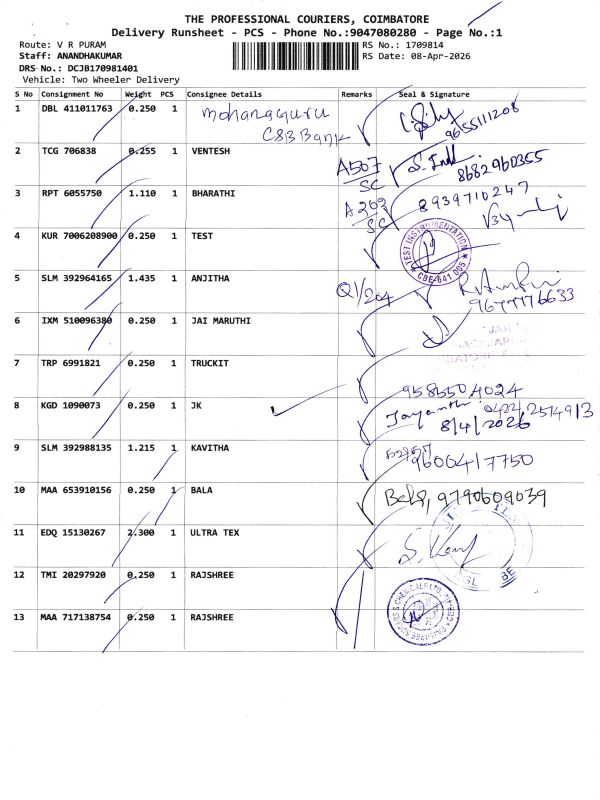 THE PROFESSIONAL COURIERS, COIMBATORE
Delivery Runsheet - PCS - Phone No.:9047080280 - Page No.:1
Route: V R PURAM
RS No.: 1709814
Staff: ANANDHAKUMAR
RS Date: 08-Apr-2026
DRS No.: DCJB170981401
Vehicle: Two Wheeler Delivery
S No Consignment No Weight PCS Consignee Details Remarks Seal & Signature
1 DBL 411011763 0.250 1 mohanaguru
CSB Bank
9655111208
2 TCG 706838 0.255 1 VENTESH A507
SC
8682960355
3 RPT 6055750 1.110 1 BHARATHI A202
SC
8939710247
4 KUR 7006208900 0.250 1 TEST
TEST INSTRUMENTATION
CBE-641 005
5 SLM 392964165 1.435 1 ANJITHA Q1/204
9677776633
6 IXM 510096380 0.250 1 JAI MARUTHI
7 TRP 6991821 0.250 1 TRUCKIT
9585504024
8 KGD 1090073 0.250 1 JK
Jayanthi 0422,2574913
8/4/2026
9 SLM 392988135 1.215 1 KAVITHA
9600417750
10 MAA 653910156 0.250 1 BALA
9790609039
11 EDQ 15130267 2.300 1 ULTRA TEX
12 TMI 20297920 0.250 1 RAJSHREE
13 MAA 717138754 0.250 1 RAJSHREE